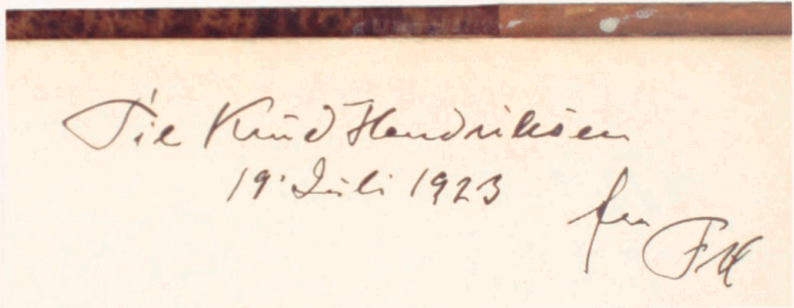 Til Knud Hendriksen
19. Juli 1923
fra FH